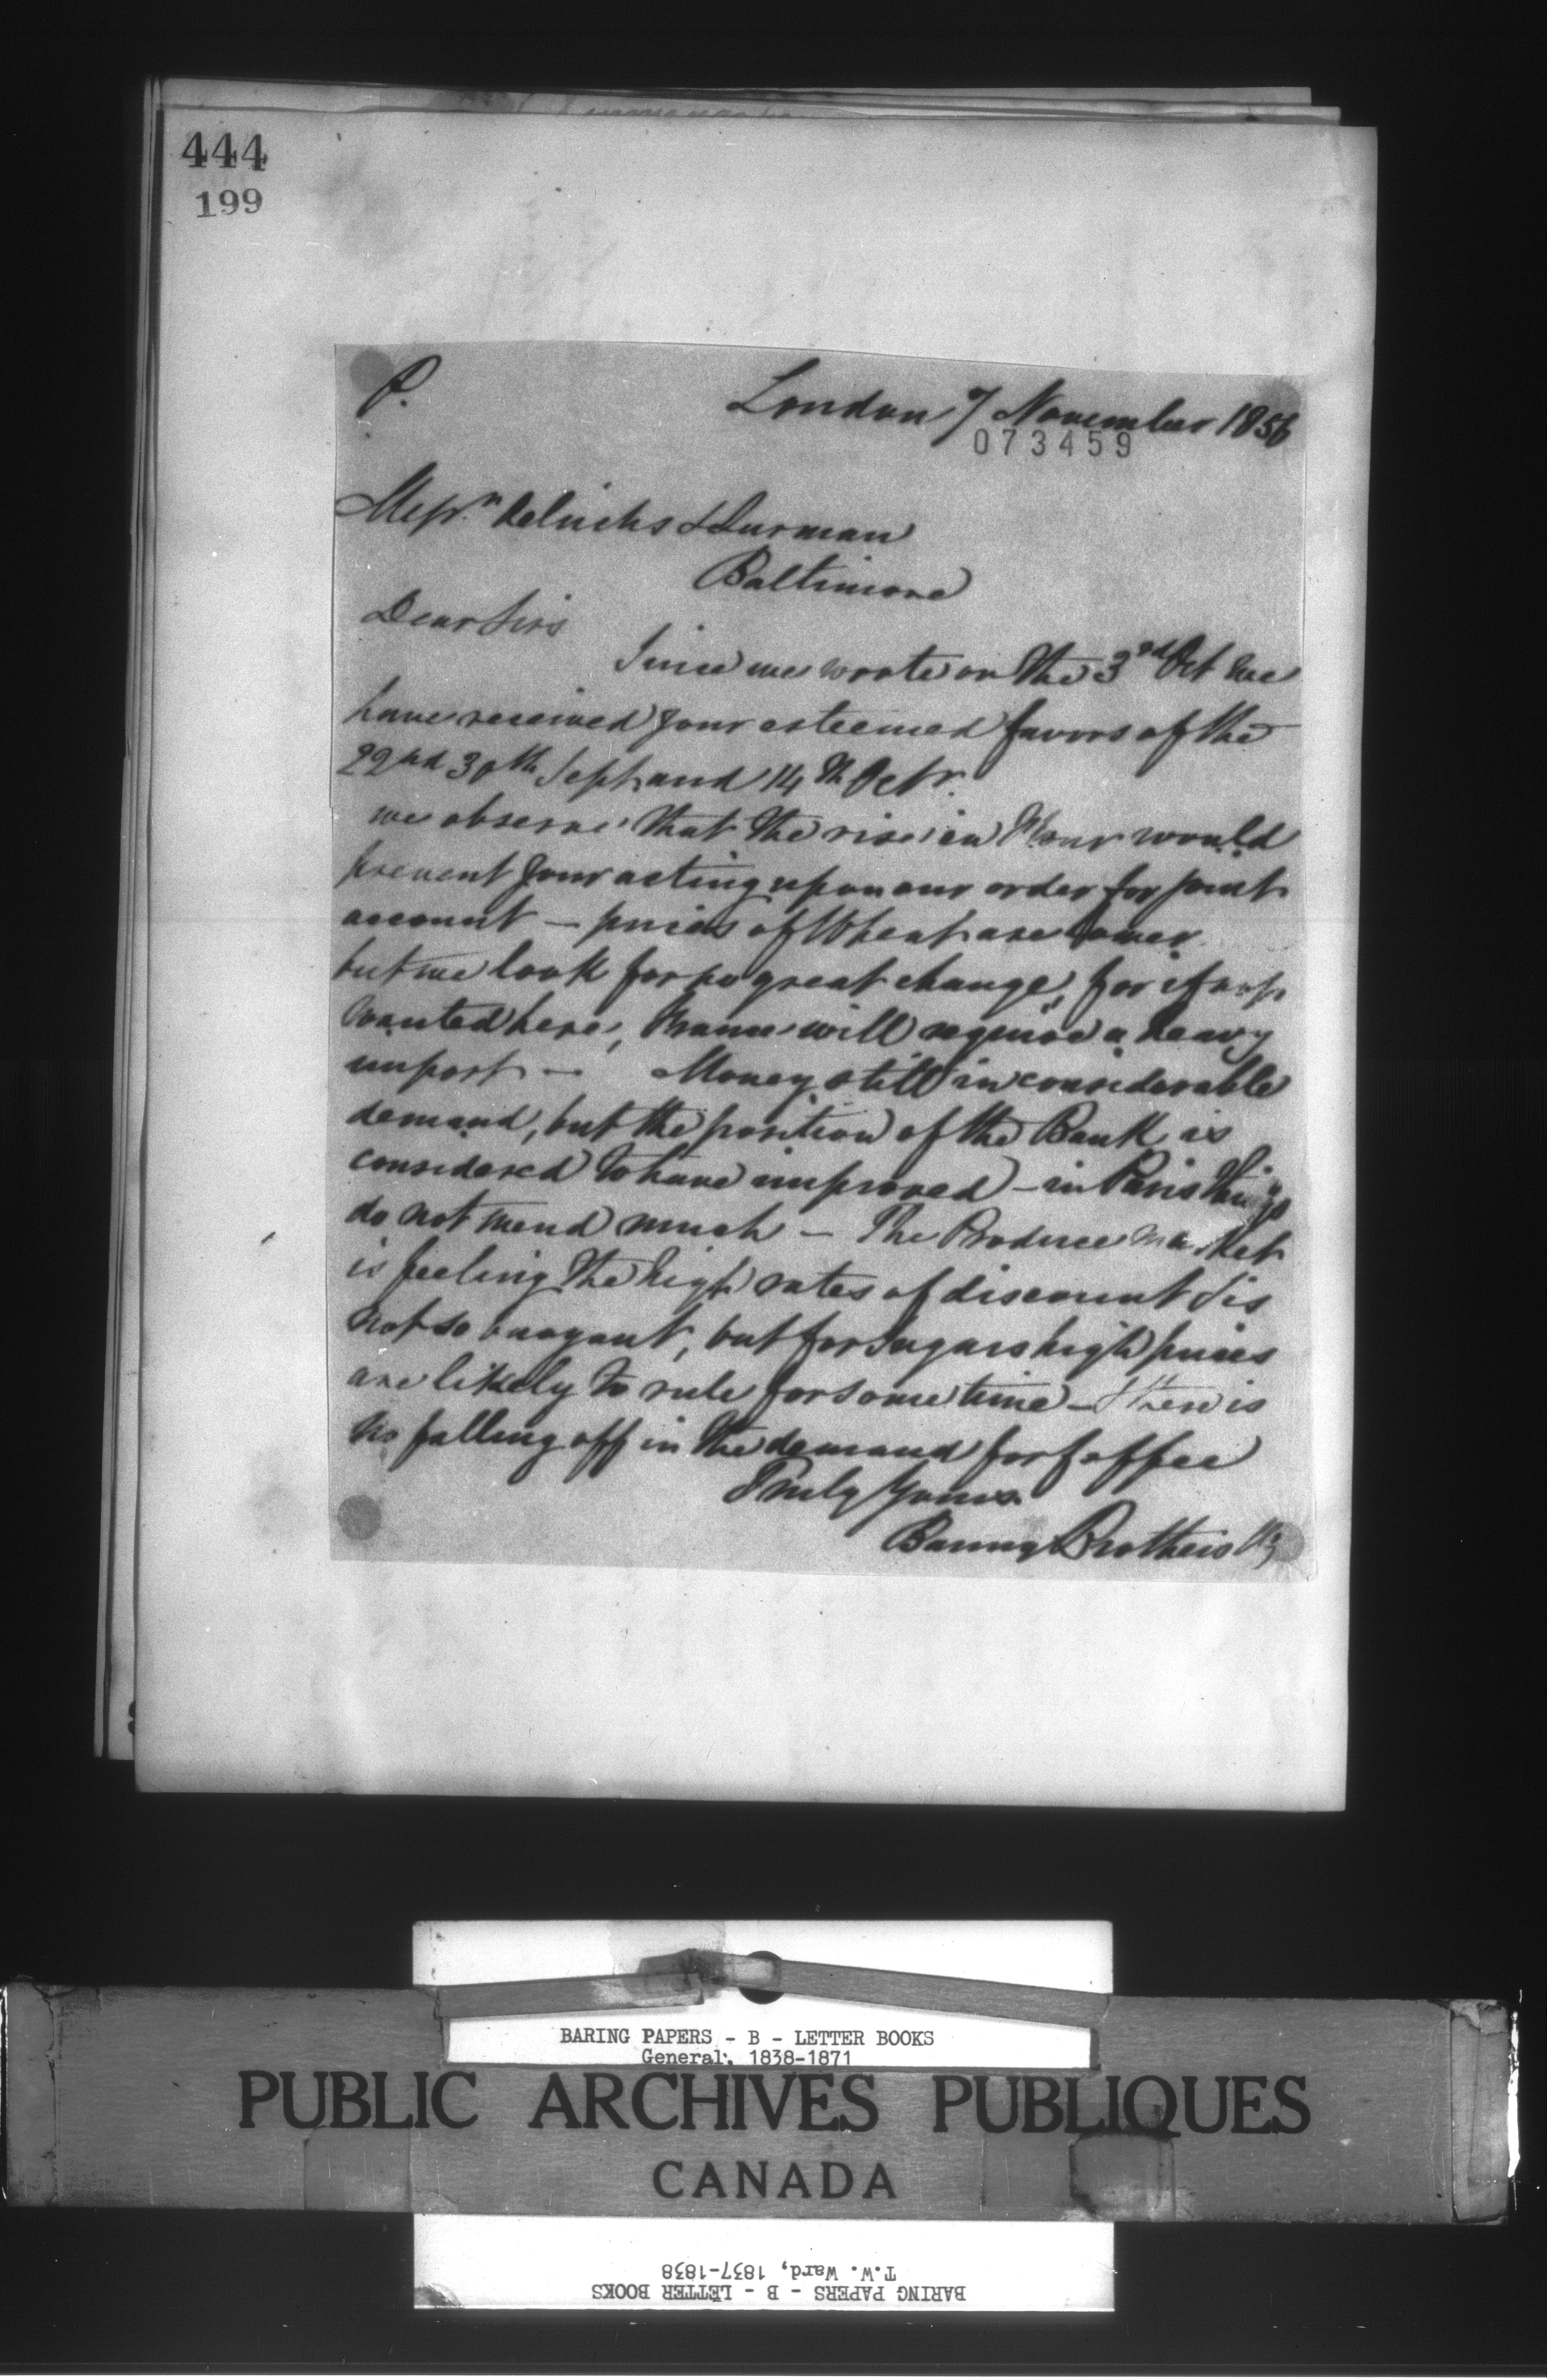 444
199
P.
London 7 November 1856
073459
Messrs Oelrichs & Lurman
Baltimore
Dear Sirs
Since we wrote on the 3rd Oct we
have received your esteemed favors of the
22nd 30th Sept and 14th Octr.
we observe that the rise in Flour would
prevent your acting upon our order for joint
account – prices of Wheat are lower
but we look for no great change, for if not
wanted here, France will require a heavy
import – Money still in considerable
demand, but the position of the Bank is
considered to have improved – in Paris things
do not mend much – The Produce market
is feeling the high rates of discount & is
not so buoyant, but for Sugars high prices
are likely to rule for some time – There is
no falling off in the demand for Coffee
Truly Yours
Baring Brothers &Co
BARING PAPERS - B - LETTER BOOKS
General, 1838-1871
PUBLIC ARCHIVES PUBLIQUES
CANADA
BARING PAPERS - B - LETTER BOOKS
T.W. Ward, 1837-1838